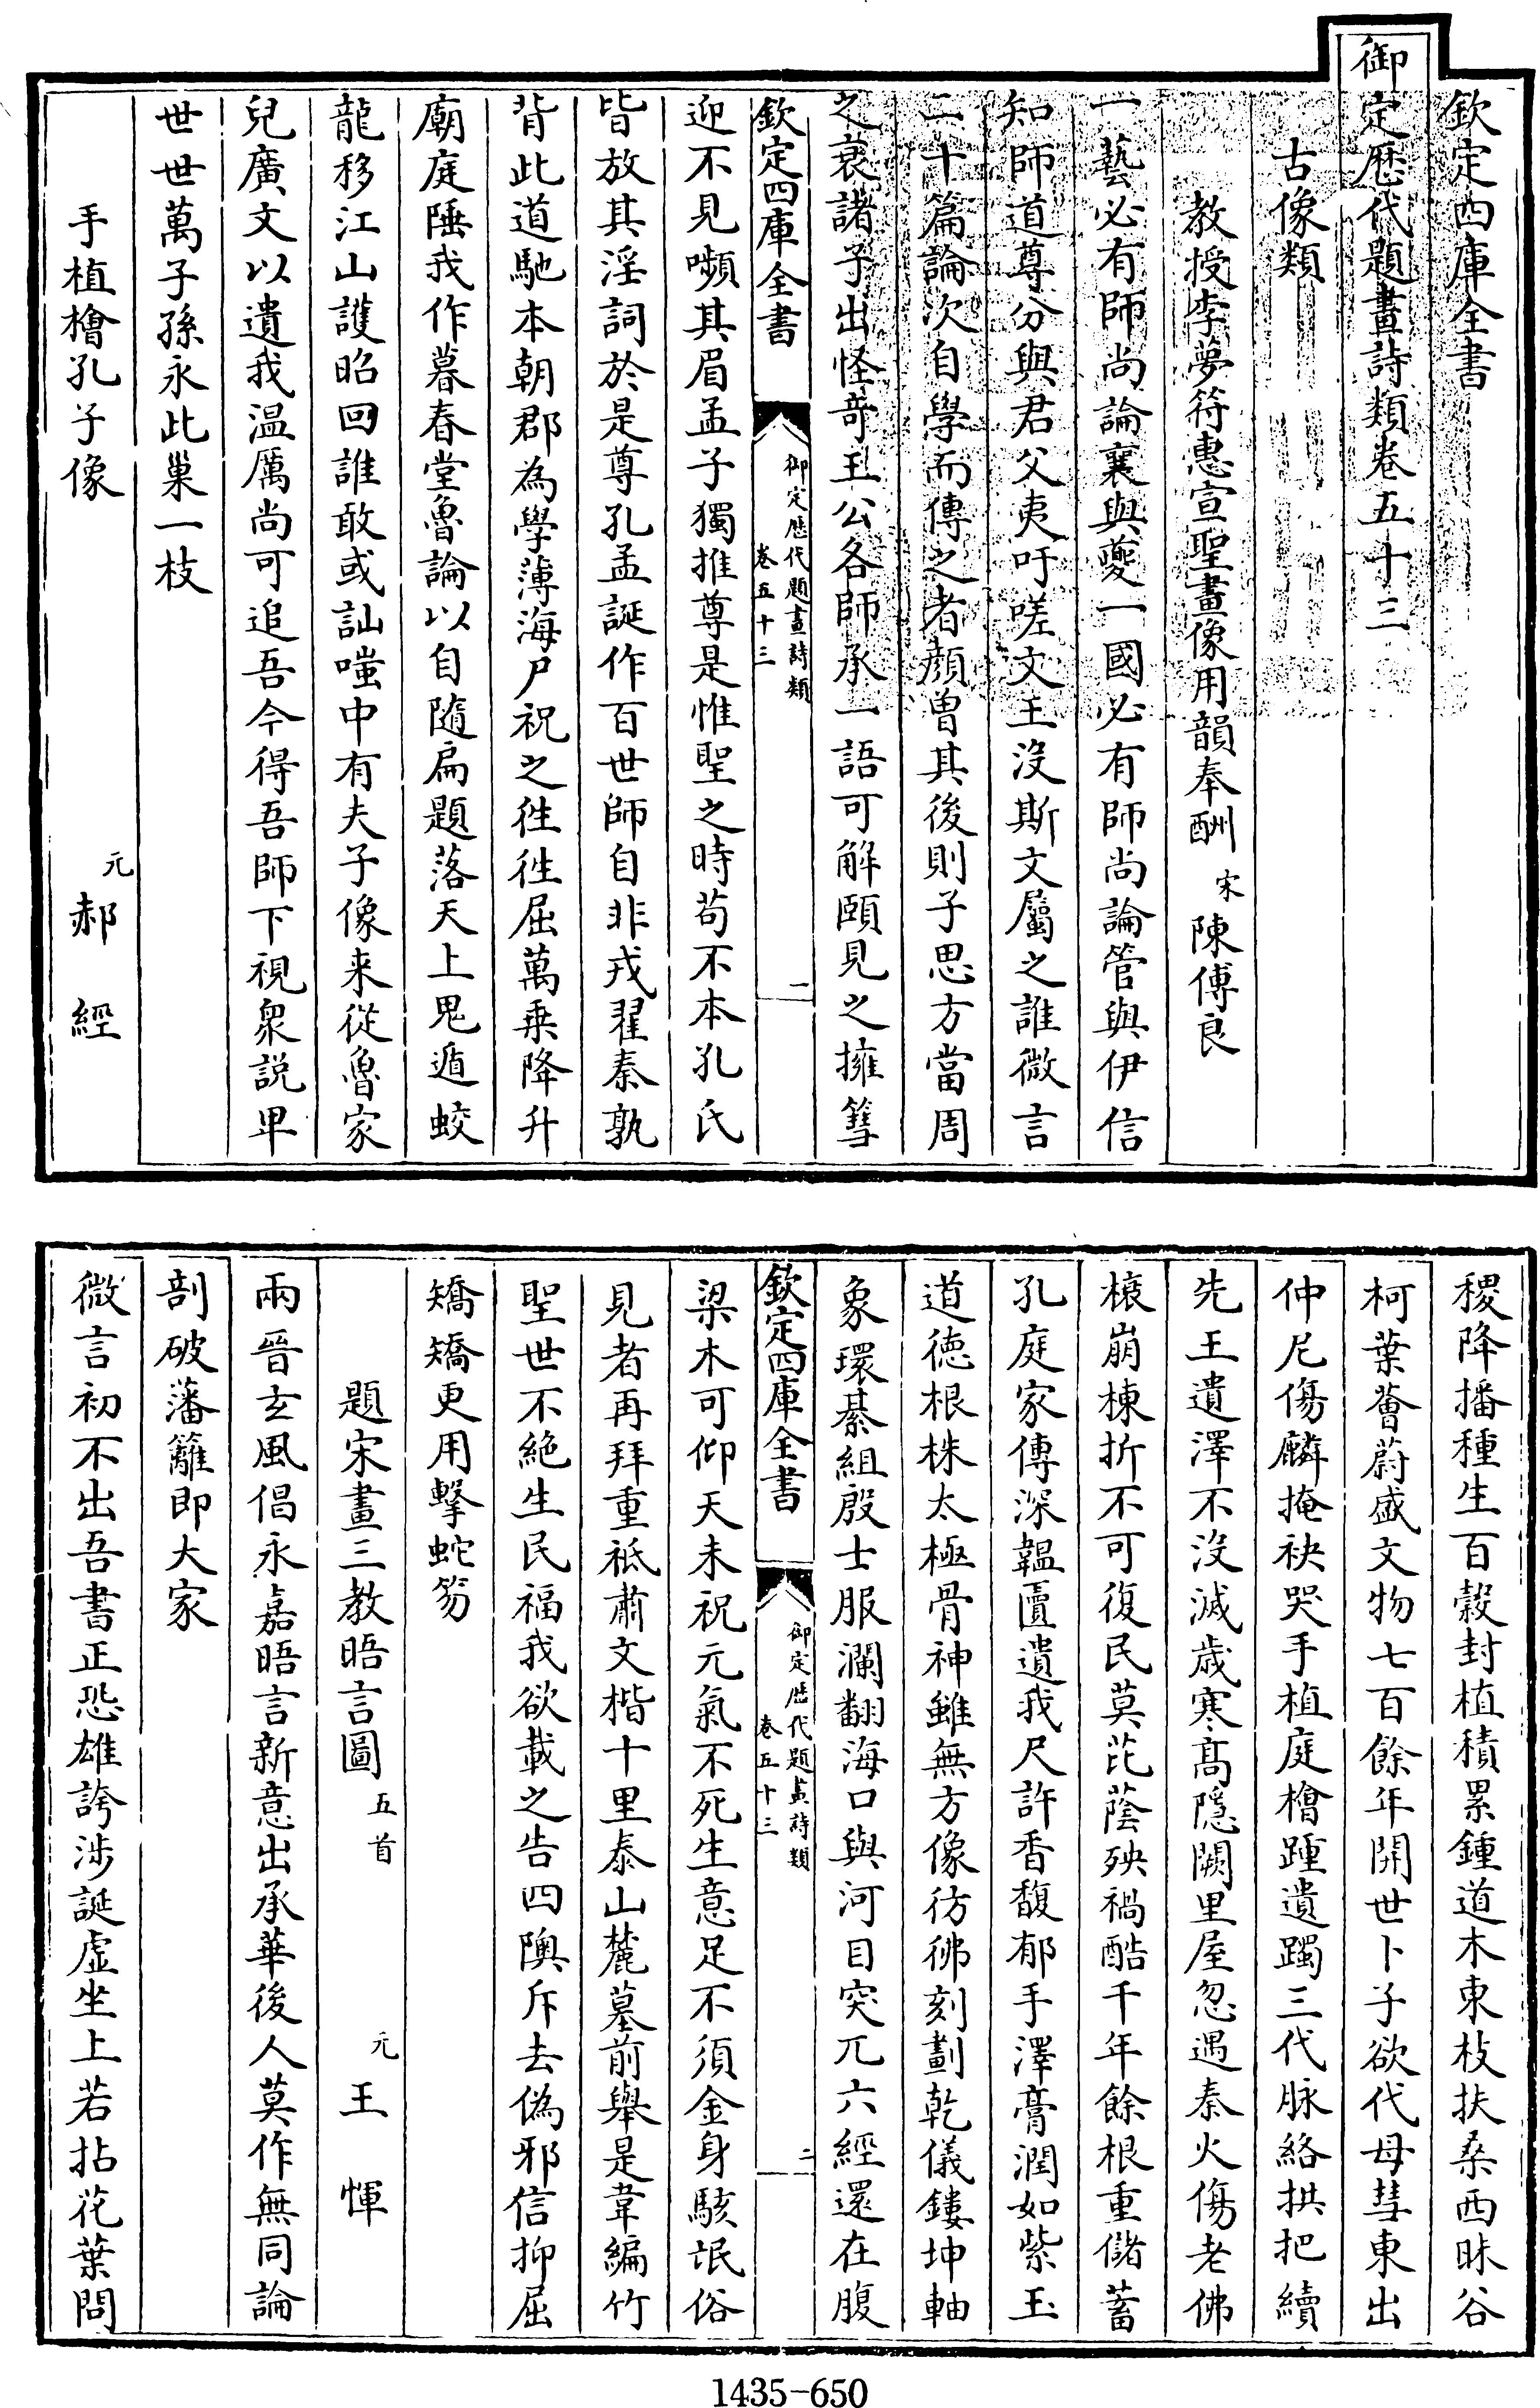 欽定四庫全書
御定歴代題畫詩類卷五十三
古像類
教授李夢符惠宣聖畫像用韻奉酬 宋 陳傅良
一藝必有師尚論襄與夔一國必有師尚論管與伊信
知師道尊分與君父夷吁嗟文王沒斯文屬之誰微言
二十篇論次自學而傳之者顔曽其後則子思方當周
之衰諸子出怪竒王公各師承一語可解頤見之擁篲
欽定四庫全書
御定歴代題畫詩類
卷五十三
一
迎不見嚬其眉孟子獨推尊是惟聖之時苟不本孔氏
皆放其淫詞於是尊孔孟誕作百世師自非戎翟秦孰
背此道馳本朝郡為學薄海尸祝之徃徃屈萬乗降升
廟庭陲我作暮春堂魯論以自隨扁題落天上鬼遁蛟
龍移江山䕶昭回誰敢或訕嗤中有夫子像来從魯家
兒廣文以遺我温厲尚可追吾今得吾師下視衆説卑
世世萬子孫永此巢一枝
手植檜孔子像 元 郝經
稷降播種生百榖封植積累鍾道木東枝扶桑西昧谷
柯葉薈蔚盛文物七百餘年開世卜子欲代母彗東出
仲尼傷麟掩袂哭手植庭檜踵遺躅三代脉絡拱把續
先王遺澤不沒滅歳寒髙隠闕里屋忽遇秦火傷老佛
榱崩棟折不可復民莫芘蔭殃禍酷千年餘根重儲蓄
孔庭家傳深韞匵遺我尺許香馥郁手澤膏潤如紫玉
道徳根株太極骨神雖無方像彷彿刻劃乾儀鏤坤軸
象環綦組殷士服瀾翻海口與河目突兀六經還在腹
欽定四庫全書
御定歴代題畫詩類
卷五十三
二
梁木可仰天未祝元氣不死生意足不須金身駭氓俗
見者再拜重祗肅文楷十里泰山麓墓前舉是韋編竹
聖世不絶生民福我欲載之告四隩斥去偽邪信抑屈
矯矯更用擊蛇笏
題宋畫三教晤言圖 五首 元 王惲
兩晉玄風倡永嘉晤言新意出承華後人莫作無同論
剖破藩籬即大家
微言初不出吾書正恐雄誇渉誕虚坐上若拈花葉問
1435-650